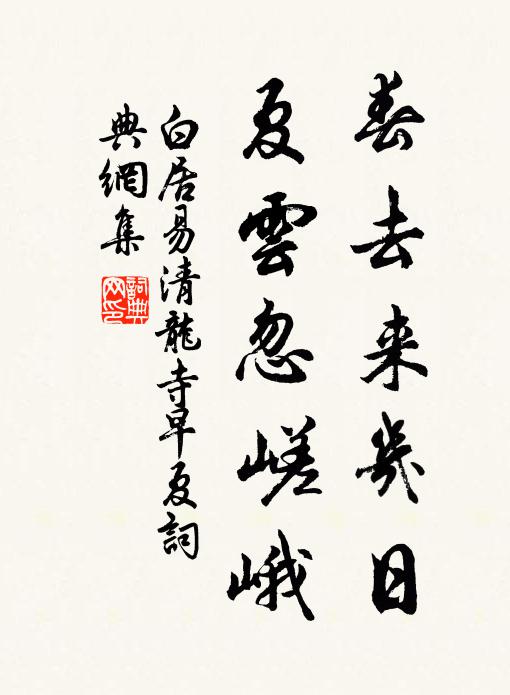 春去来幾日
夏雲忽嵯峨
白居易清龍寺早夏詞
典網集
詞典网印